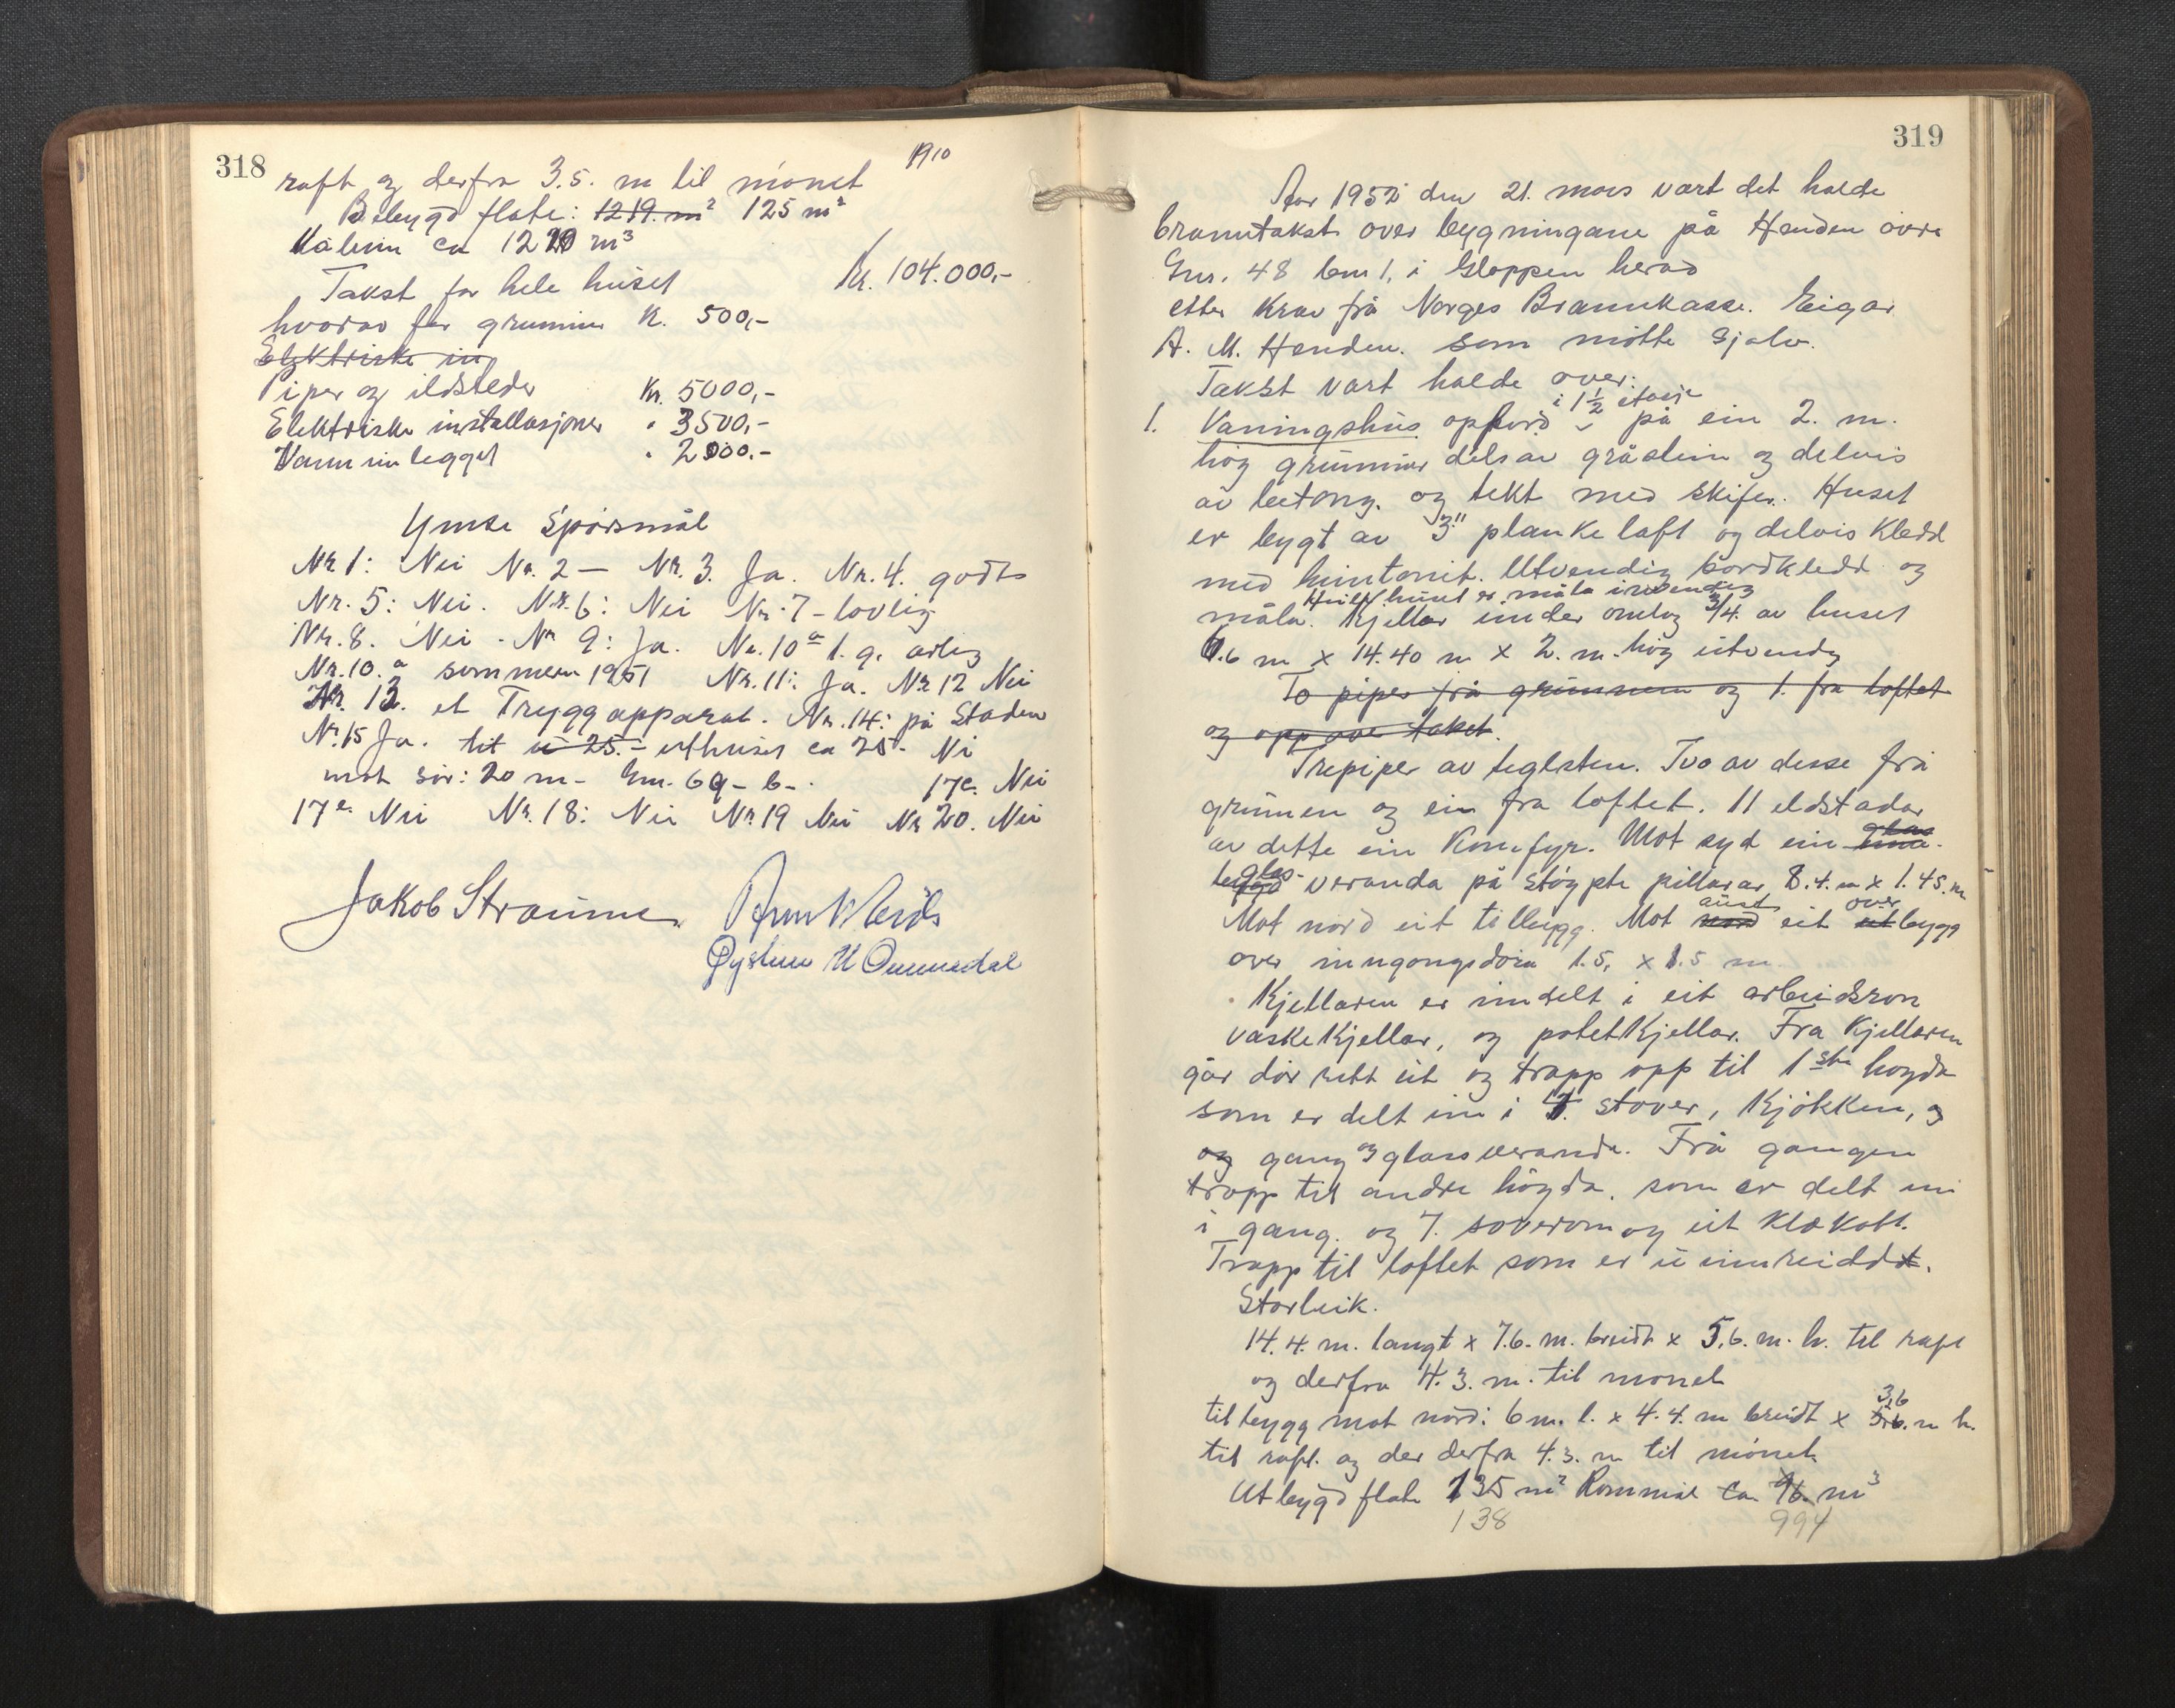 318
1910
raft og derfra 3.5. m til mønet
Bebygd flate: 1219. m² 125 m²
ca 1220 m³
Takst for hele huset Kr. 104.000,-
hvorav for grunnmur K. 500,-
Elektriske in
Piper og ildsteder Kr. 5000,-
Elektriske installasjoner " 3500,-
Vann innlegget " 2000.-
Ymse Spørsmål
Nr 1: Nei Nr. 2 — Nr. 3. Ja. Nr. 4. godt
Nr. 5: Nei. Nr. 6: Nei Nr. 7 - lovlig
Nr. 8. Nei - Nr 9: Ja. Nr. 10 a 1. g. årlig
Nr. 10. a sommeren 1951 Nr. 11: Ja. Nr 12 Nei
Nr. 13. et Tryggapparat. Nr. 14: på Staden
Nr. 15 Ja. til u 25.- uthuset ca 25- Nei
mot sør: 20 m - Gnr. 69 - b -. 17c. Nei
17e. Nei Nr. 18: Nei Nr. 19 Nei Nr 20. Nei
Jakob Straume
Øystein M Ommedal
319
Aar 1952 den 21. mars vart det halde
branntakst over bygningane på Henden øvre
Gnr. 48 bnr 1, i Gloppen herad
etter krav frå Norges Brannkasse. Eigar
A. M. Henden. som møtte sjølv.
Takst vart halde over:
i 1½ etasje
1. Våningshus oppførd på ein 2. m.
høg grunnmur dels av gråstein og delvis
av betong. og tekt med skifer. Huset
er bygt av 3" planke laft og delvis kledd
med huntonit. Utvendig bordkledd og
Heile huset er måla innvendig
måla. Kjellar under omlag 3/4. av huset
7.6 m x 14.40 m x 2. m. høg utvendig
To piper frå grunnen og 1. fra loftet
og opp over taket.
Trepiper av teglsten. Tvo av desse frå
grunnen og ein fra loftet. 11 eldstadar
av dette ein Komfyr. Mot syd ein glas
glas-
veranda på støypte pillarar 8.4. m x 1.45. m
aust over
Mot nord eit tillbygg. Mot nord eit utbygg
over inngangsdøra 1.5, x 1.5 m.
Kjellaren er inndelt i eit arbeidsrom
vaskekjellar, og potetkjellar. Fra Kjellaren
går dør rett ut og trapp opp til 1ste høgda
som er delt inn i 3. stover, Kjøkken, og
og gang og glassveranda. Frå gangen
trapp til andre høgda. som er delt inn
i gang. og 7. soverom og eit klekott.
Trapp til loftet som er u innreiddt.
Storleik.
14.4. m. langt x 7.6. m. breidt x 5.6. m. h. til raft
og derfra 4.3. m. til mønet
3,6
tilbygg mot nord: 6 m. l. x 4.4. m breidt x 5.6. m h.
til raft. og der derfra 4.3. m til mønet
Utbygd flate 135 m² Rommål ca 96. m³
138 994